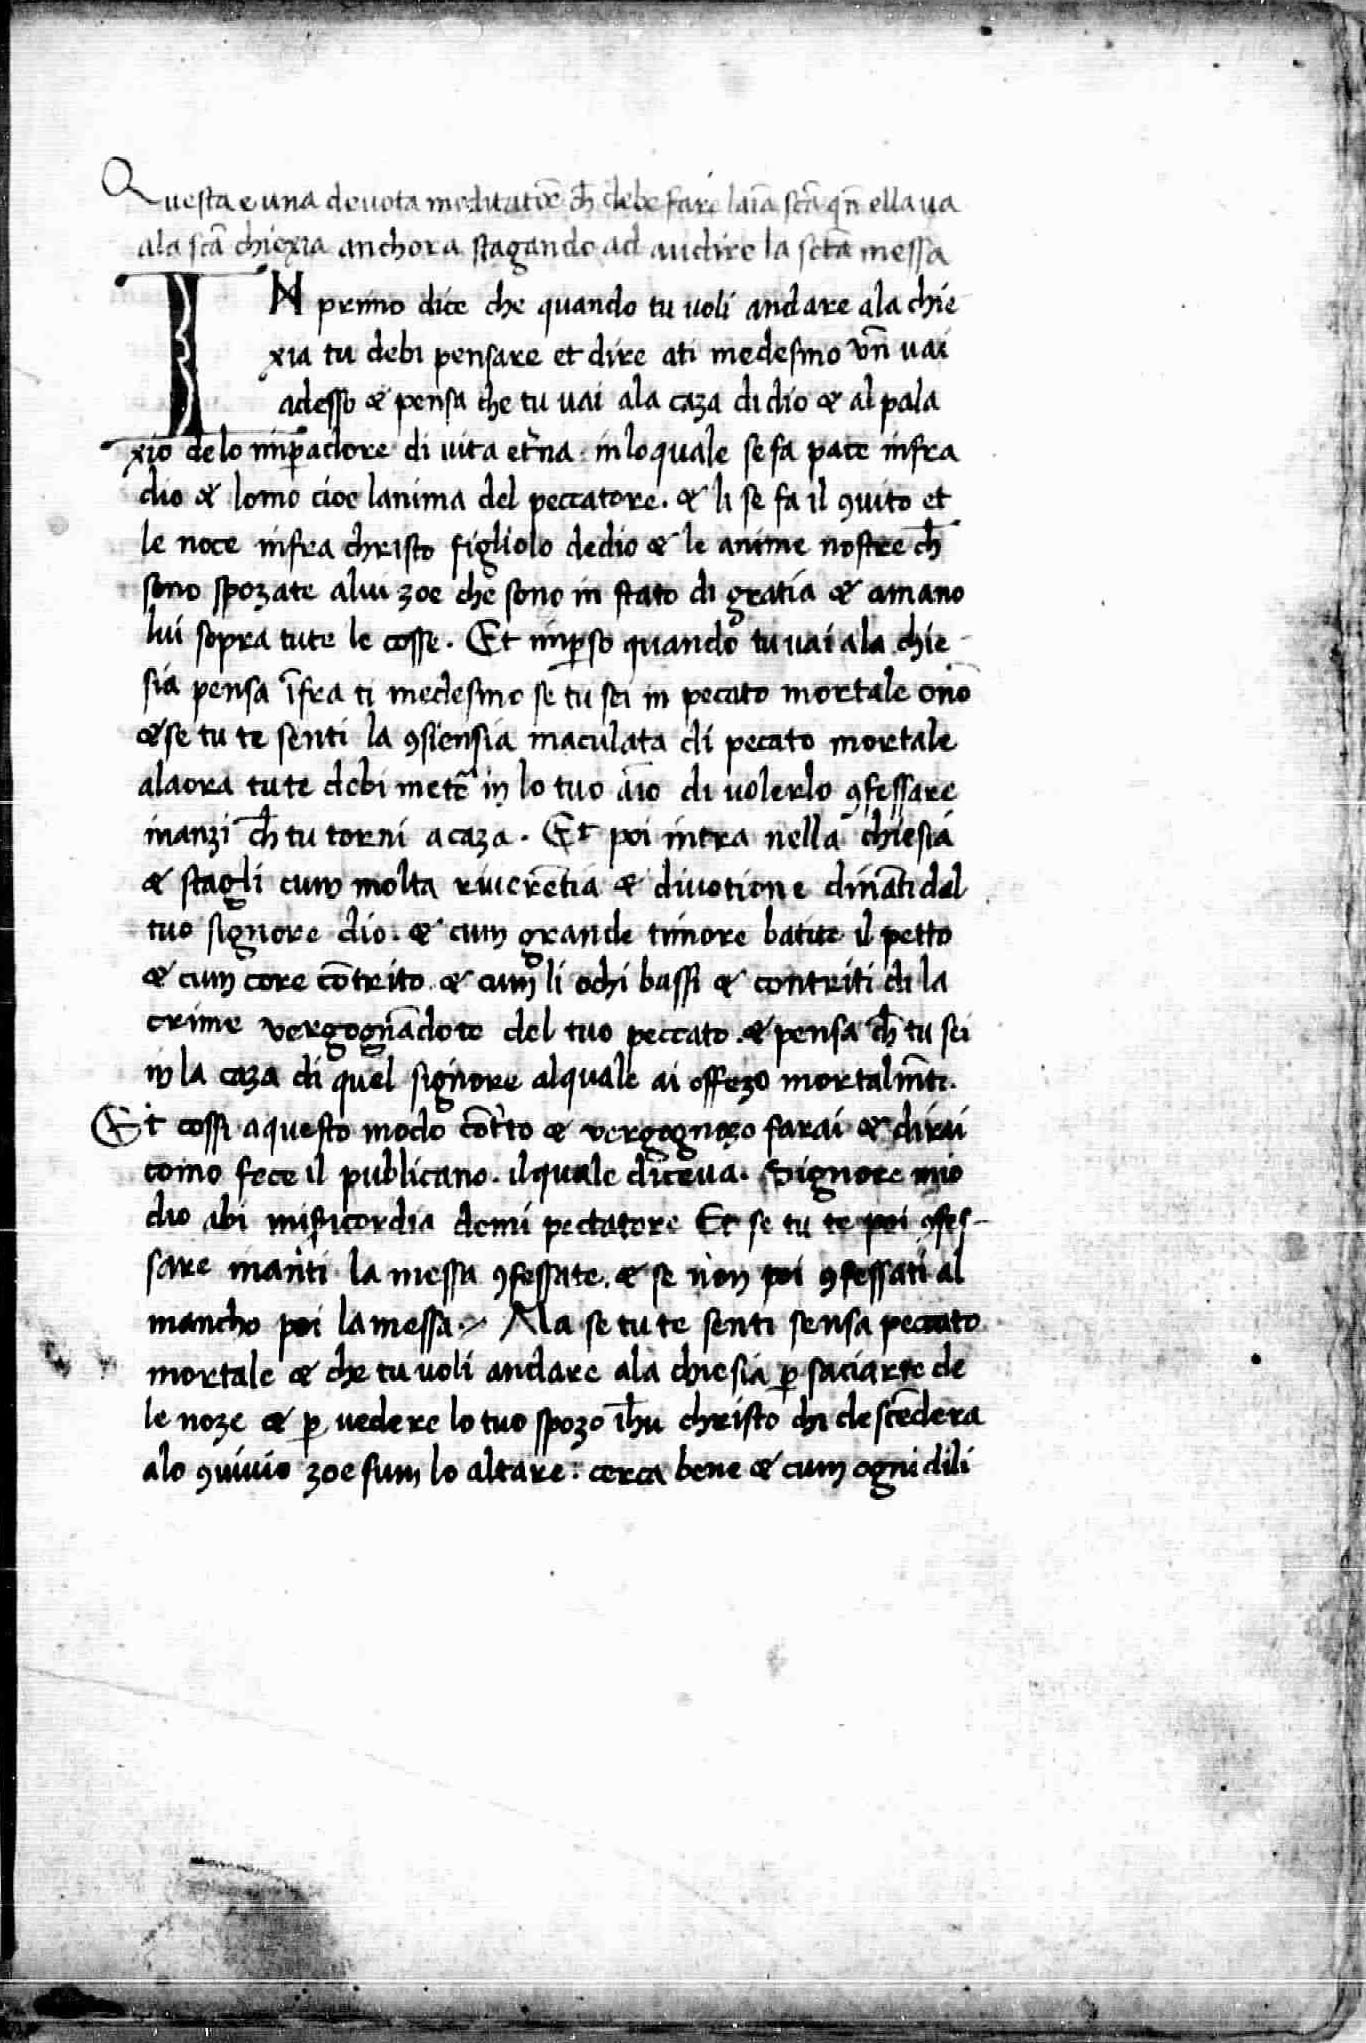 Questa e una deuota meditatiōe ch̄ debe fare laīa sc̄a qn̄ ella ua
ala sc̄a chiexia anchora stagando ad audire la sc̄ta messa
IN primo dice che quando tu uoli andare ala chie
xia tu debi pensare et dire ati medesmo vn̄ uai
adesso & pensa che tu uai ala caza di dio & al pala
xio de lo imꝑadore di uita et̄na · in lo quale se fa pace infra
dio & lomo cioe lanima del peccatore . & li se fa il ꝯuito et
le noce infra christo figliolo dedio & le anime nostre ch̄
sono spozate alui zoe che sono in stato di gratia & amano
lui sopra tute le cosse . Et imꝑso quando tu uai ala chie
sia pensa īfra ti medesmo se tu sei in pecato mortale onō
& se tu te senti la ꝯsiensia maculata di pecato mortale
alaora tu te debi metē in lo tuo aīo di uolerlo ꝯfessare
inanzi ch̄ tu torni a caza . Et poi intra nella chiesia
& stagli cum molta riuerētia & diuotione dināti del
tuo signore dio . & cum grande timore batite il petto
& cum core cōtrito . & cum li ochi bassi & contriti di la
crime vergognādote del tuo peccato . & pensa ch̄ tu sei
in la caza di quel signore alquale ai offezo mortalm̄te .
Et cossi a questo modo cōtito & vergognozo farai & dirai
como fece il publicano . il quale diceua . Signore mio
dio abi misericordia demi peccatore Et se tu te poi ꝯfes-
sare inanti la messa ꝯfessate . & se non poi ꝯfessati al
mancho poi la messa . Ma se tu te senti sensa peccato
mortale & che tu uoli andare ala chiesia ꝑ saciarte de
le noze & ꝑ vedere lo tuo spozo ih̄u christo chi descēdera
alo ꝯuiuio zoe sum lo altare . cerca bene & cum ogni dili